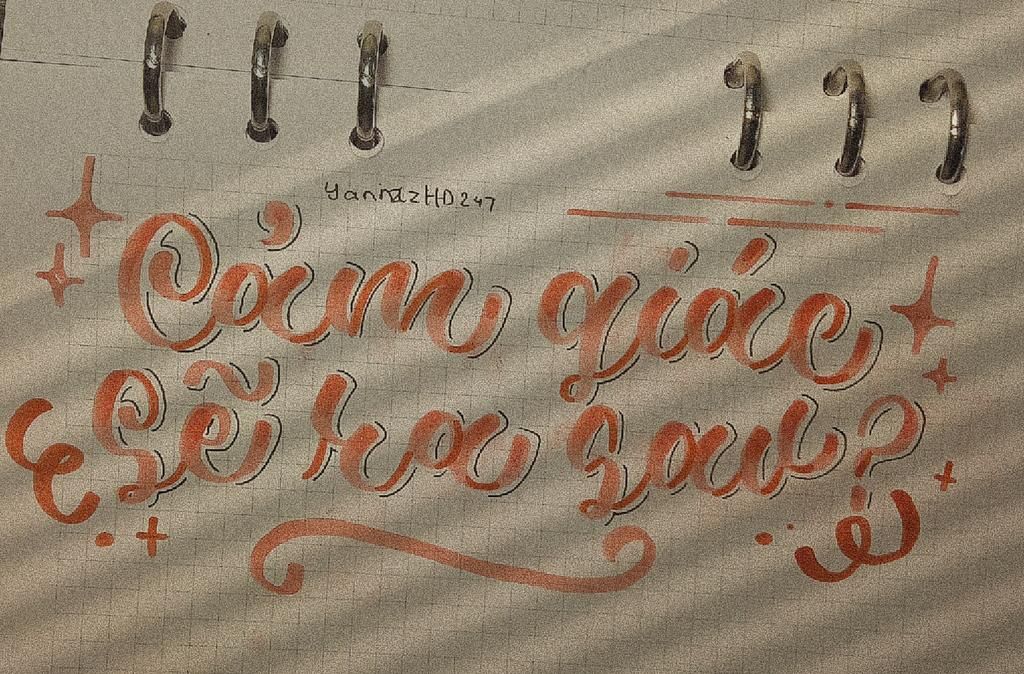 YannazHD247
Cảm giác
sẽ ra sau?